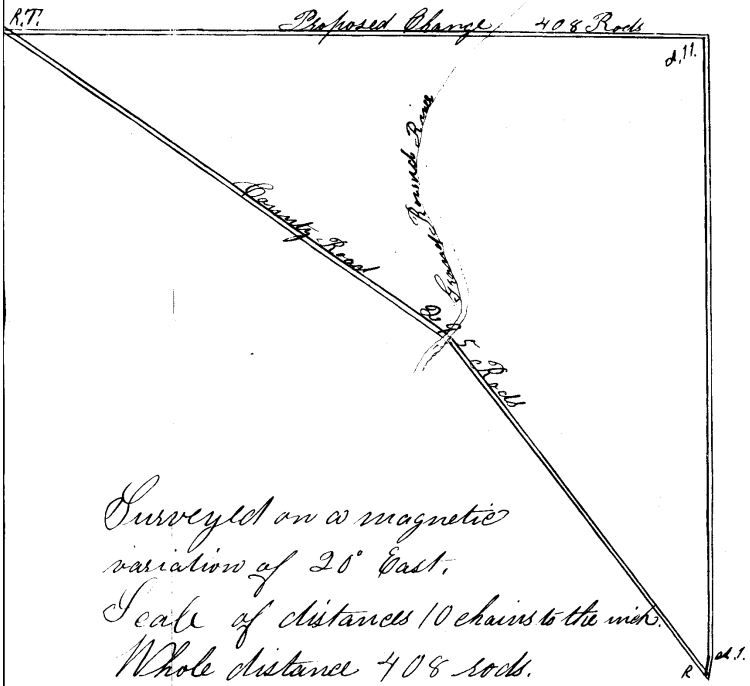 R.T.
Proposed Change 408 Rods
County Road
Grand Round River
Rods
Surveyed on a magnetic
variation of 20° East.
Scale of distances 10 chains to the inch.
Whole distance 408 rods.
R